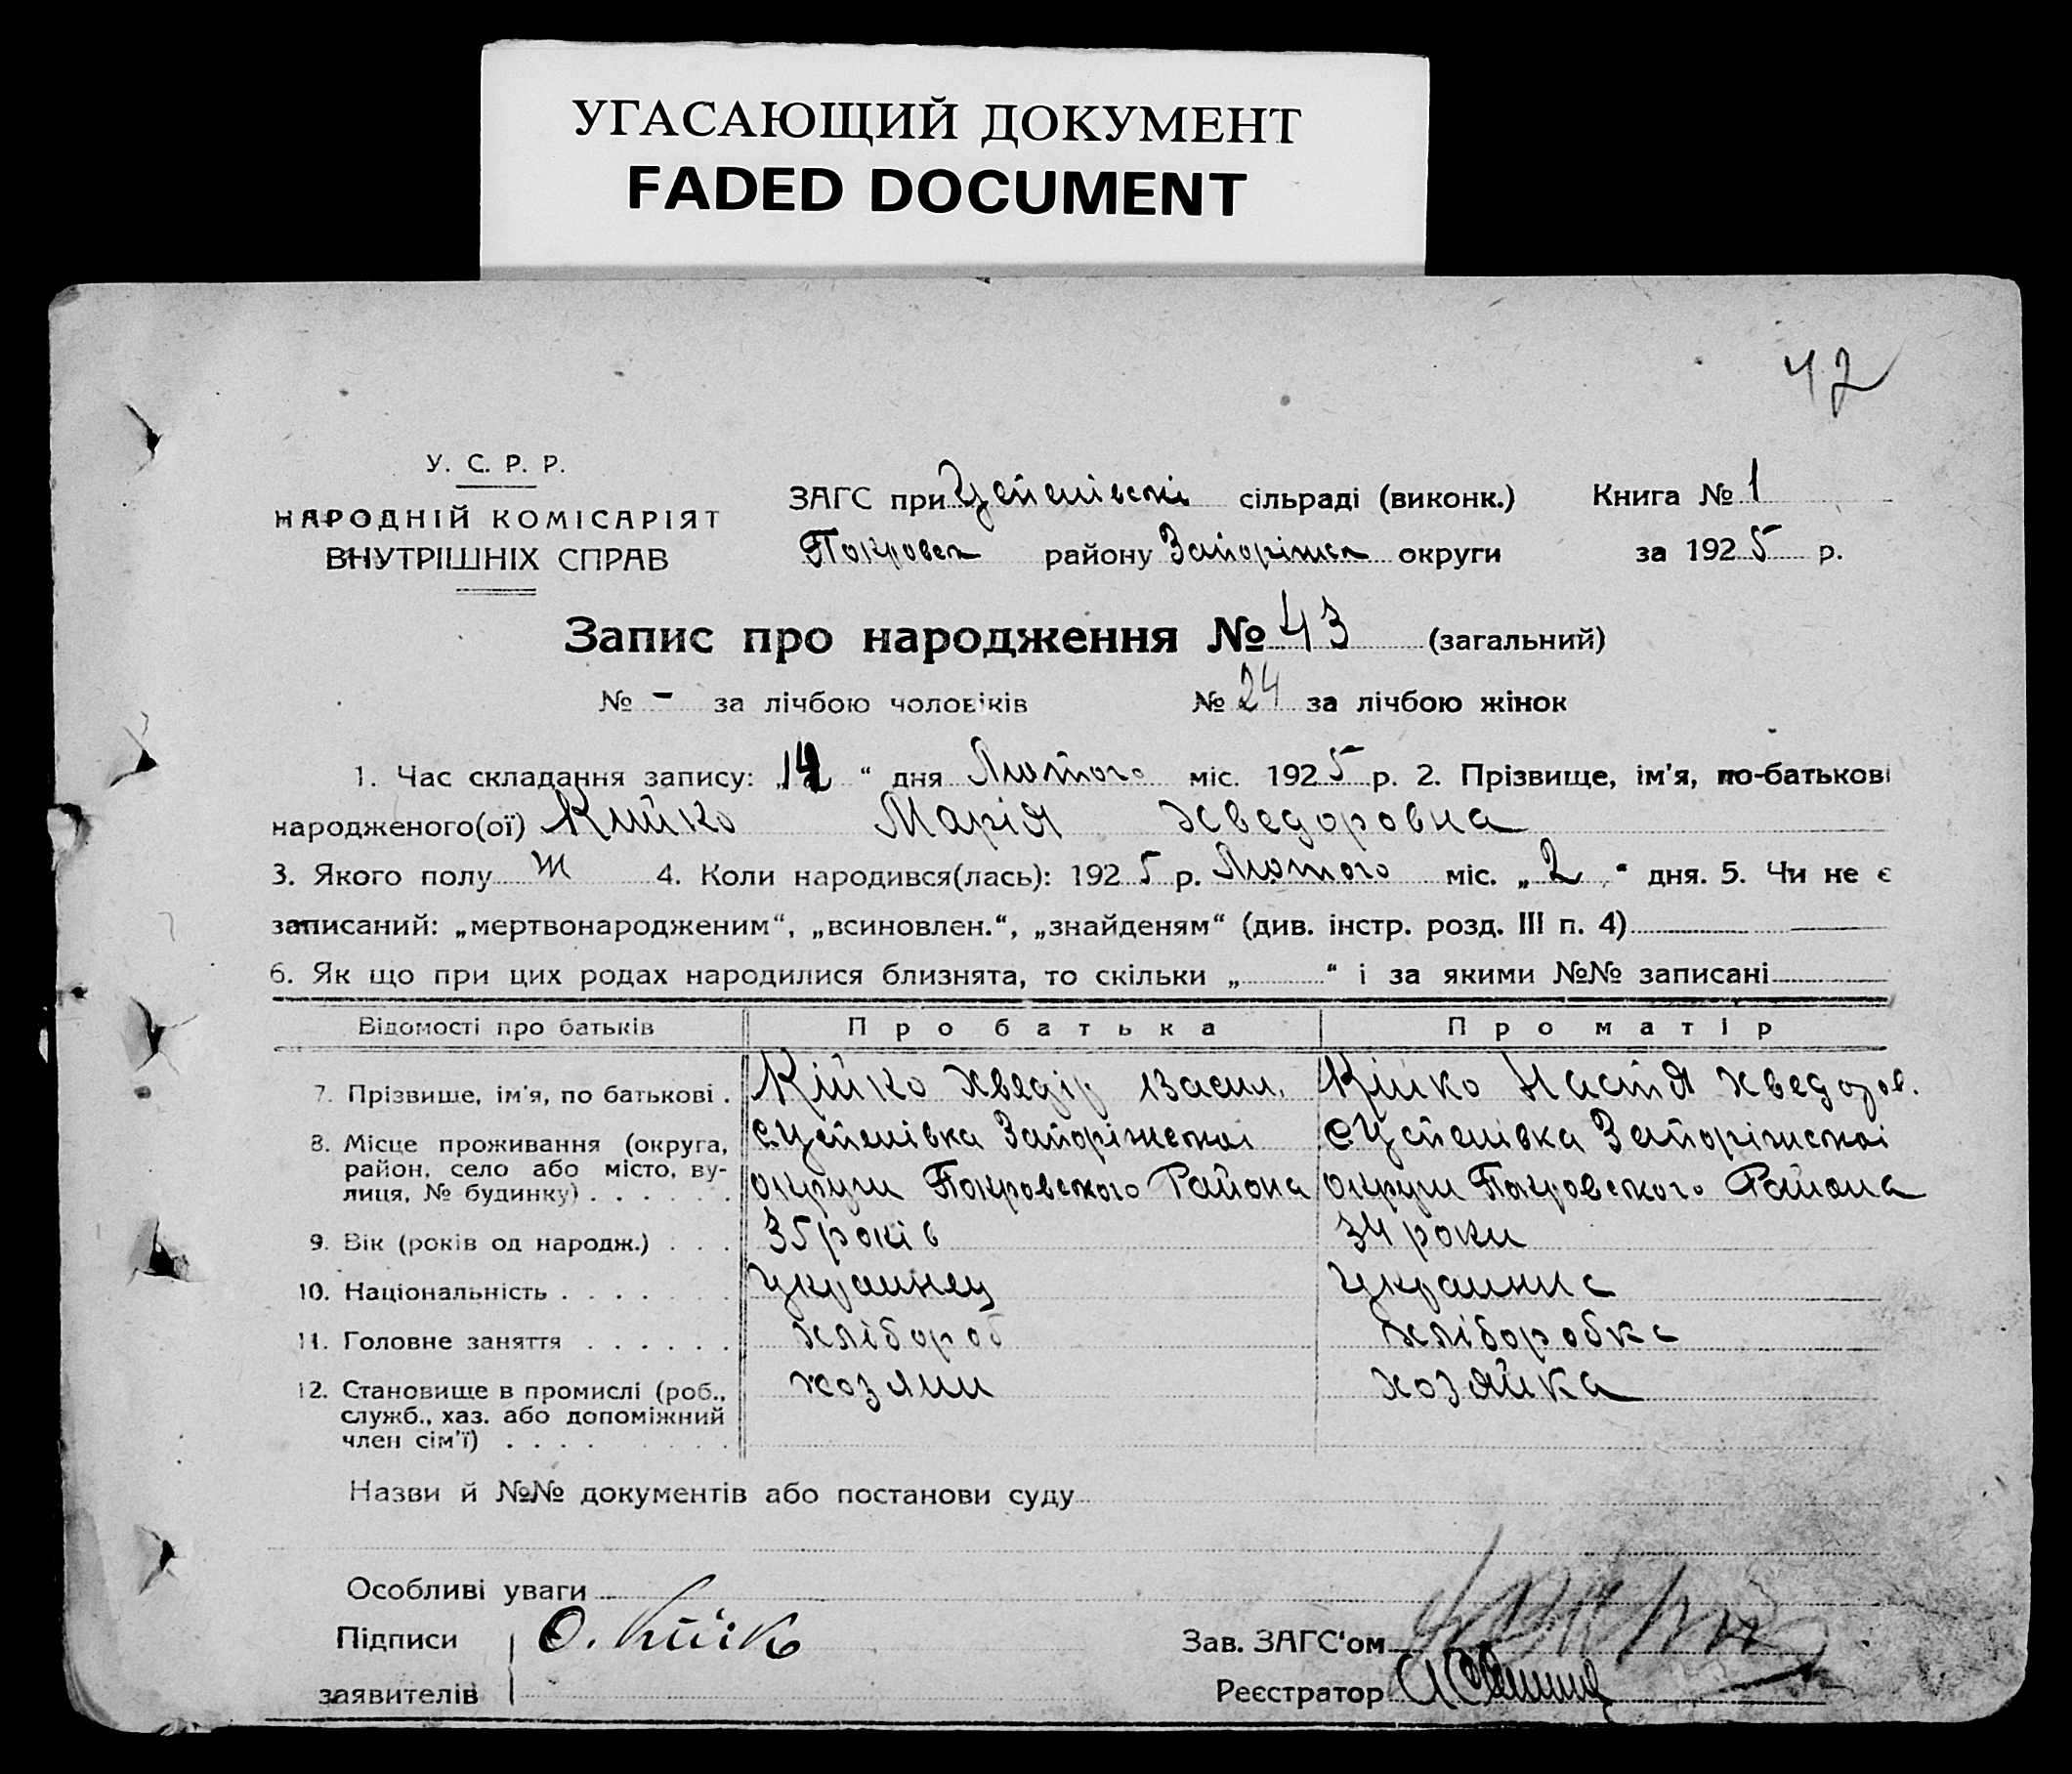 УГАСАЮЩИЙ ДОКУМЕНТ
FADED DOCUMENT
42
У. С. Р. Р.
НАРОДНІЙ КОМІСАРІЯТ
ВНУТРІШНІХ СПРАВ
ЗАГС при Успенівські сільраді (виконк.)
Покровск району Запоріжск округи
Книга № 1
за 1925 р.
Запис про народження № 43 (загальний)
№ - за лічбою чоловіків № 24 за лічбою жінок
1. Час складання запису: „ “ дня Лютого міс. 1925 р. 2. Прізвище, ім'я, по-батькові
народженого(ої) Кийко Марія Хведоровна
3. Якого полу ж 4. Коли народився(лась): 1925 р. Лютого міс. „2“ дня. 5. Чи не є
записаний: „мертвонародженим“, „всиновлен.“, „знайденям“ (див. інстр. розд. III п. 4)
6. Як що при цих родах народилися близнята, то скільки „ “ і за якими №№ записані
Відомості про батьків Про батька Про матір
7. Прізвище, ім'я, по батькові . Кійко Хведір Васил. Кійко Настя Хведоров.
8. Місце проживання (округа, район, село або місто, вулиця, № будинку) . . . . . . с Успенівка Запоріжскоі округи Покровского Района с Успенівка Запоріжскоі округи Покровского Района
9. Вік (років од народж.) . . . 35 років 34 роки
10. Національність . . . . . . . украинец украинка
11. Головне заняття . . . . . . хлібороб хліборобка
12. Становище в промислі (роб., служб., хаз. або допоміжний член сім'ї) . . . . хозяин хозяйка
Назви й №№ документів або постанови суду
Особливі уваги
Підписи О. Кійко
заявителів
Зав. ЗАГС‘ом
Реєстратор